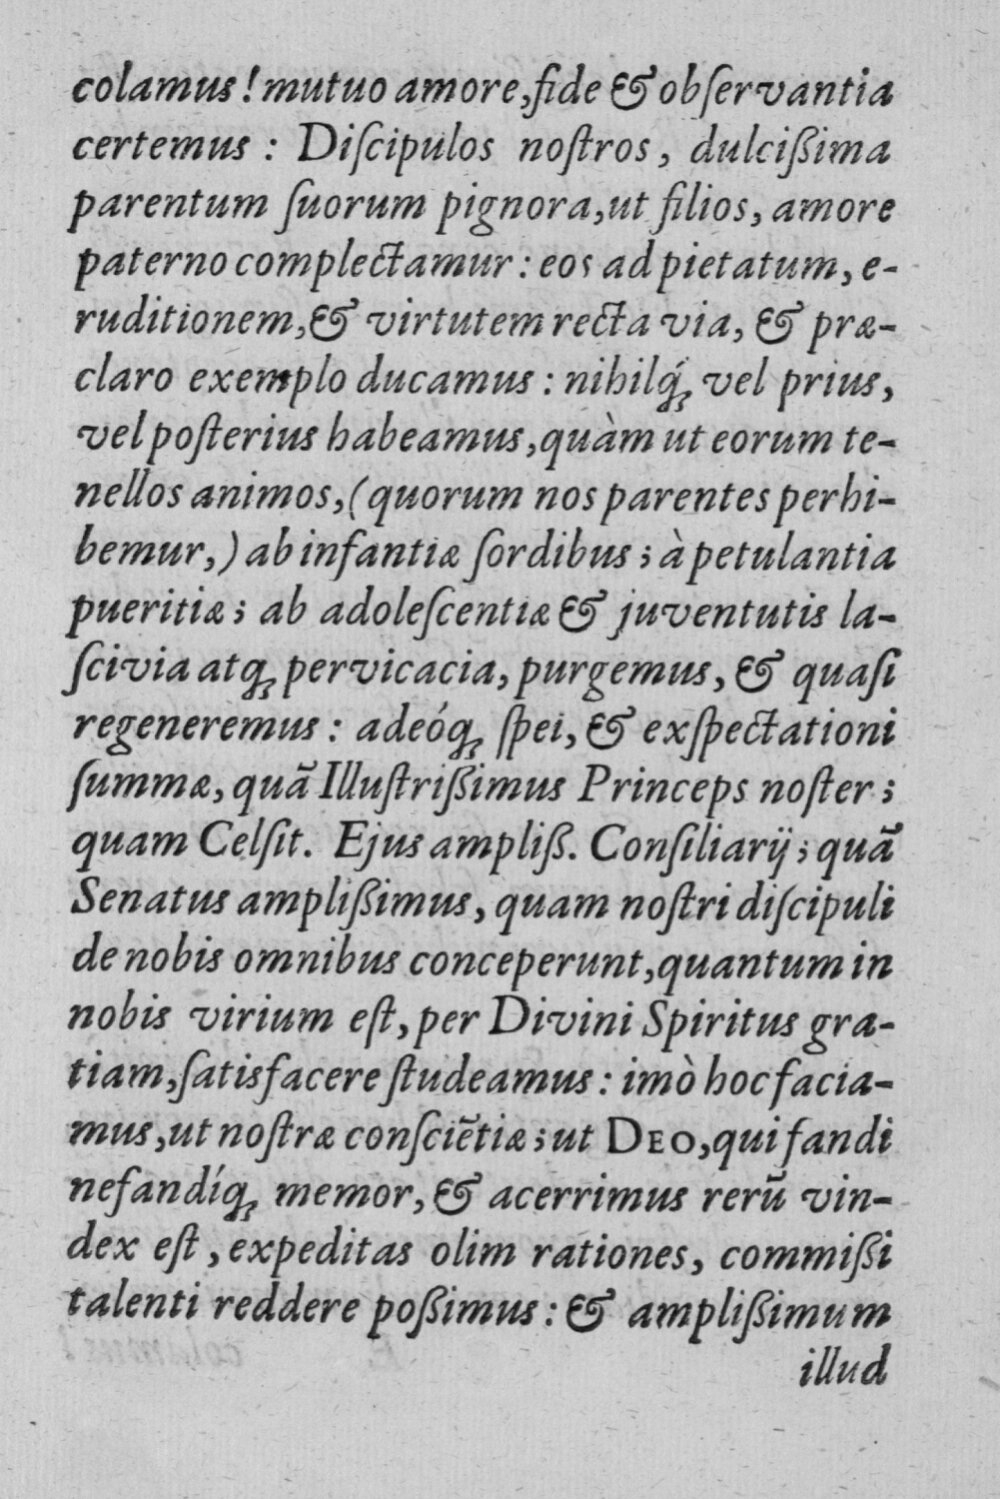 colamus! mutuo amore, fide & obſervantia
certemus: Diſcipulos noſtros, dulcißima
parentum ſuorum pignora, ut filios, amore
paterno complectamur: eos ad pietatum, e-
ruditionem, & virtutem recta via, & præ-
claro exemplo ducamus: nihilq́; vel prius,
vel poſterius habeamus, quàm ut eorum te-
nellos animos, (quorum nos parentes perhi-
bemur,) ab infantiæ ſordibus; à petulantia
pueritiæ; ab adoleſcentiæ & juventutis la-
ſcivia atq; pervicacia, purgemus, & quaſi
regeneremus: adeóq; ſpei, & exſpectationi
ſummæ, quã Illuſtrißimus Princeps noſter;
quam Celſit. Ejus ampliß. Conſiliarij; quã
Senatus amplißimus, quam noſtri diſcipuli
de nobis omnibus conceperunt, quantum in
nobis virium eſt, per Divini Spiritus gra-
tiam, ſatisfacere ſtudeamus: imò hoc facia-
mus, ut noſtræ conſciẽtiæ; ut DEO, qui fandi
nefandíq; memor, & acerrimus rerũ vin-
dex eſt, expeditas olim rationes, commißi
talenti reddere poßimus: & amplißimum
illud